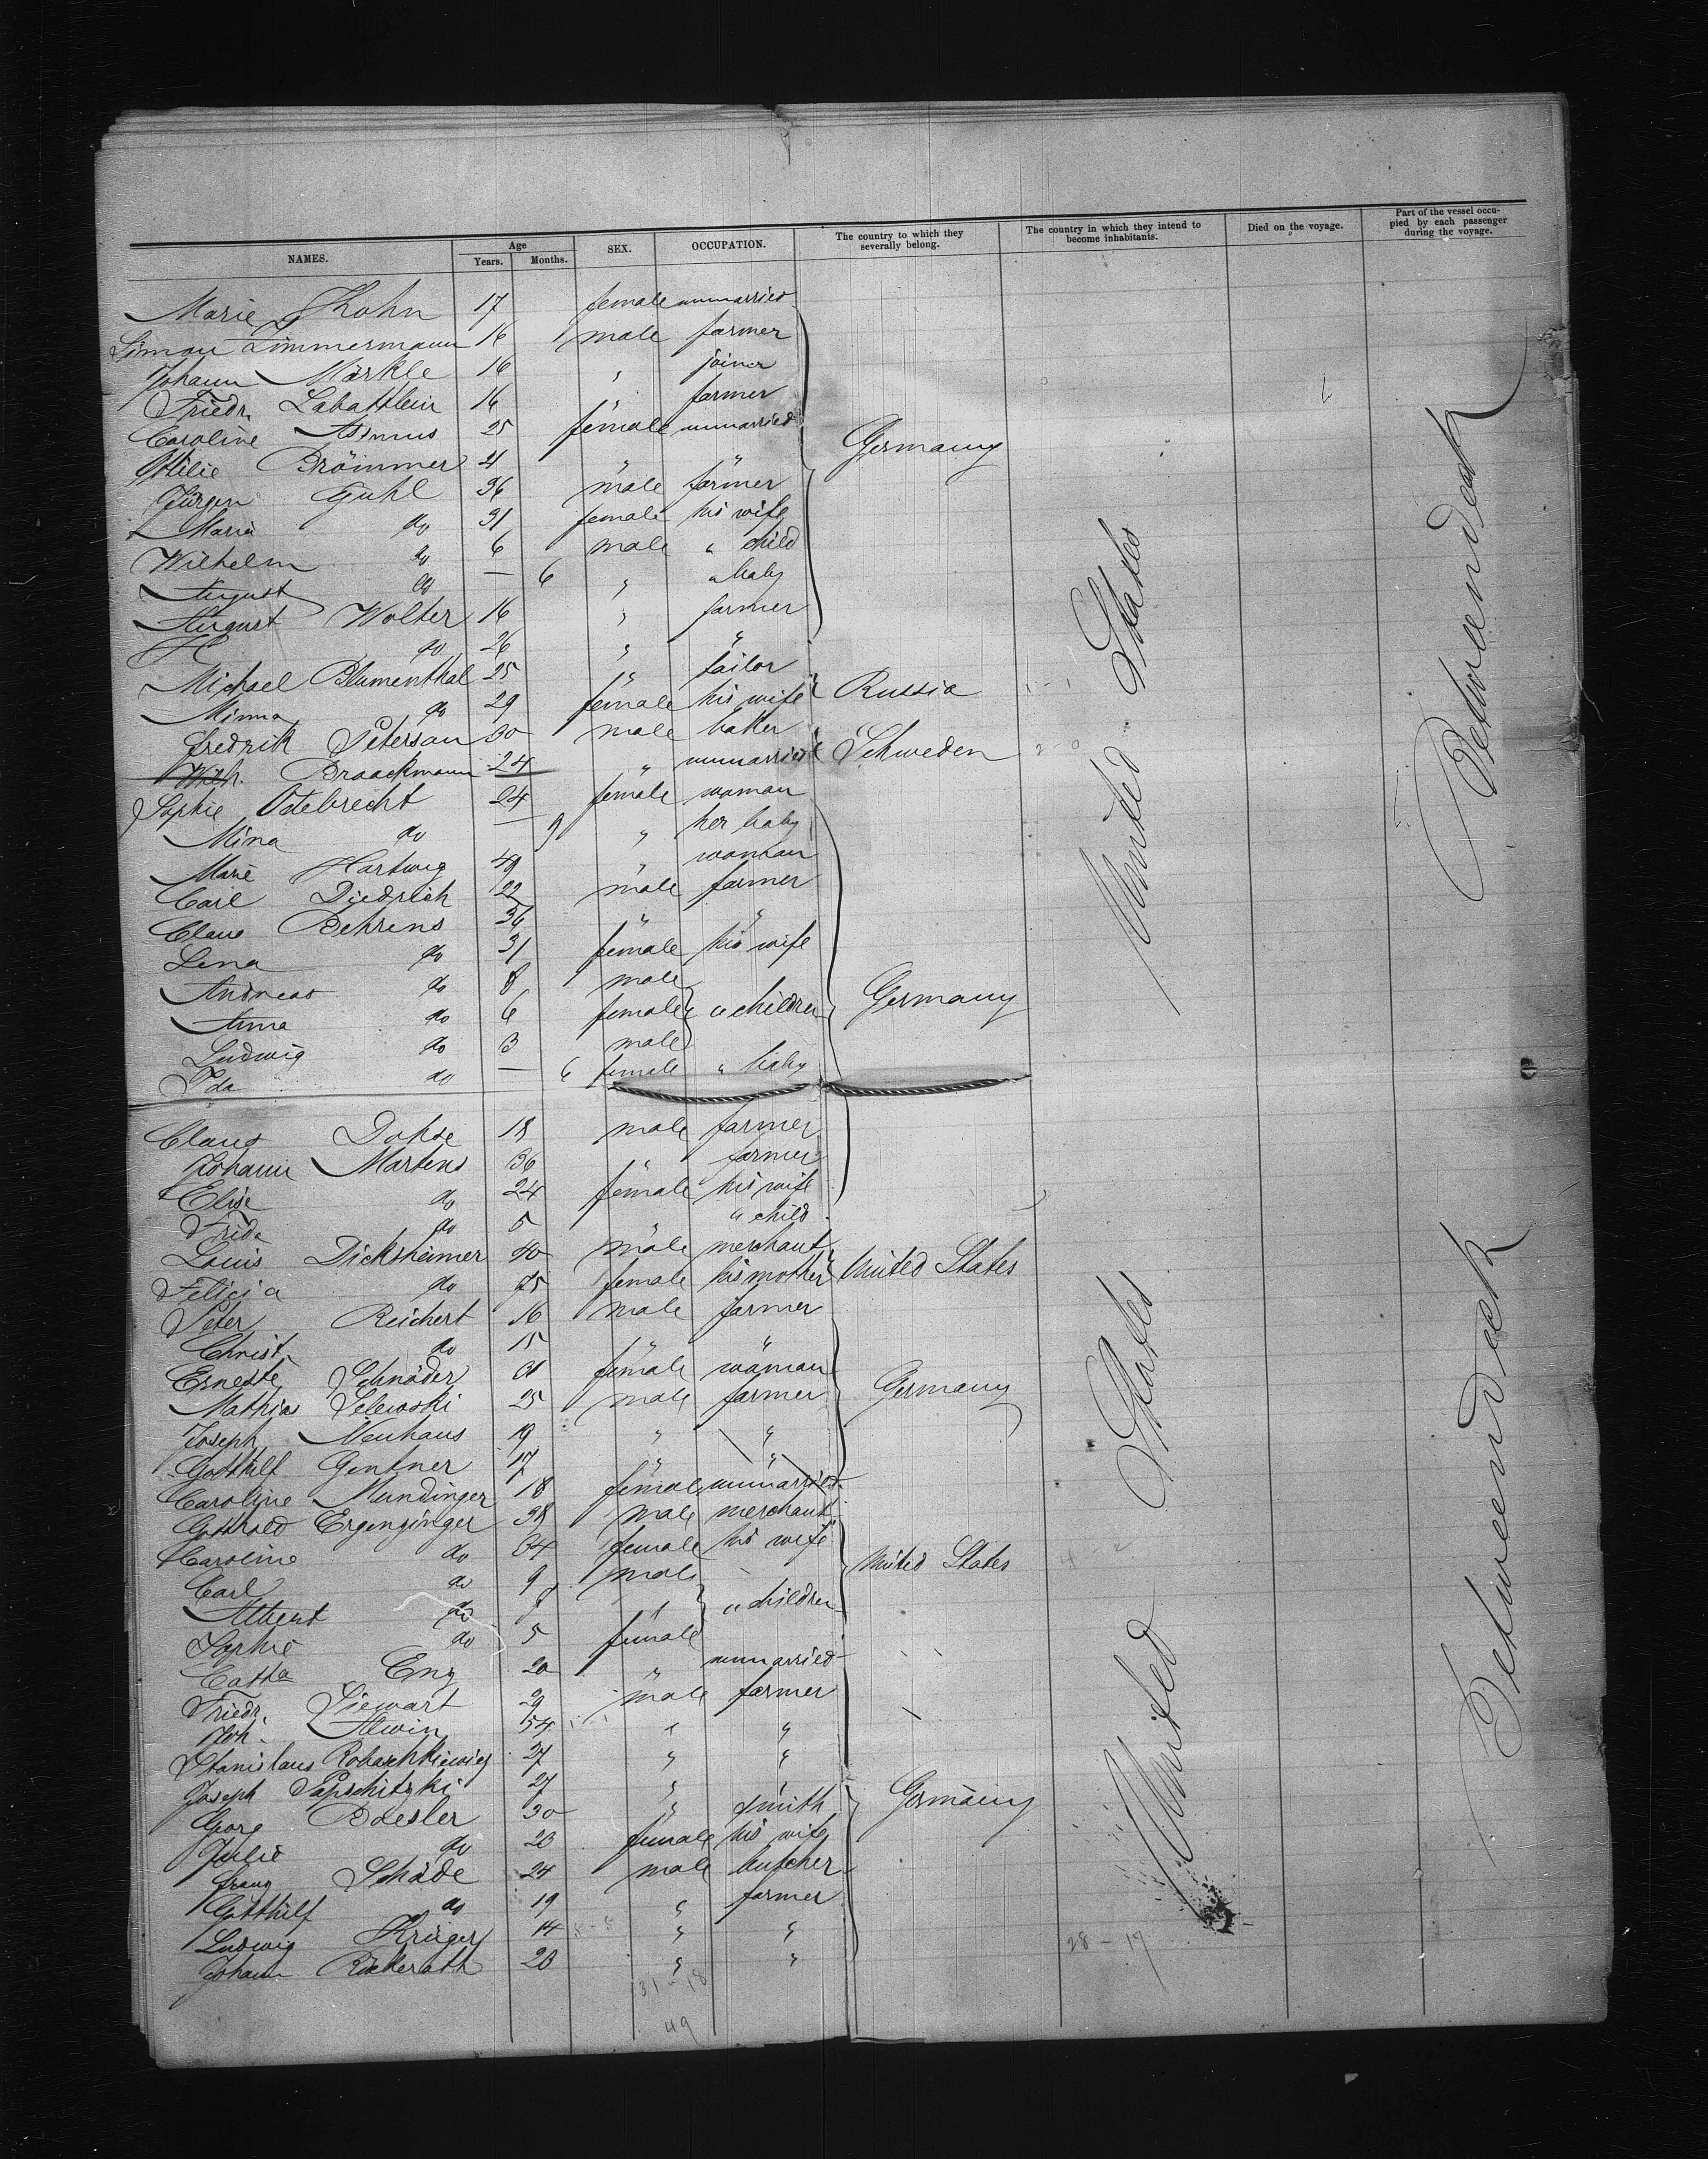 NAMES. Age Years. Months. SEX. OCCUPATION. The country to which they severally belong. The country in which they intend to become inhabitants. Died on the voyage. Part of the vessel occupied by each passenger during the voyage.
Marie Kohn 17 female unmarried
Simon Zimmermann 16 male farmer
Johann Märkle 16 " joiner
Friedr. 16 " farmer
Caroline Asmus 25 female unmarried
Ottilie Brömmer 21 " "
Jürgen Guhl 36 male farmer Germany
Maria do 31 female his wife
Wilhelm do 6 male " child
August do — 6 " " baby
August Wolter 16 " farmer
H do 26 " "
Michael Blumenthal 25 " tailor
Minna do 29 female his wife Russia
Fredrik Peterson 30 male baker
Wilh. Braackmann 24 " unmarried Schweden
Sophie Odebrecht 24 female woman
Mina do — 9 " her baby
Marie Hartwig 49 " woman
Carl Diedrich 22 male farmer
Claus Behrens 36 " "
Lena do 31 female his wife
Andreas do 8 male
Anna do 6 female " children Germany
Ludwig do 3 male
Ida do — 6 female " baby
Claus Dohse 18 male farmer
Johann Martens 36 " farmer
Elise do 24 female his wife
Frida do 5 " " child
Louis Dicksheimer 40 male merchant
Felicia do 75 female his mother United States
Peter Reichert 16 male farmer
Christ. do 15 " "
Erneste Schnöder 21 female woman
Mathias Selewski 25 male farmer Germany
Joseph Neuhaus 19 " "
Gotthilf Gentner 17 " "
Caroline Mundinger 18 female unmarried
Gotthold Ergenzinger 38 male merchant
Caroline do 34 female his wife
Carl do 9 male United States
Albert do " " children
Sophie do 5 female
Eng 20 " unmarried
Friedr. Siewart 29 male farmer
Joh. Alwin 54 " "
Stanislaus 27 " "
Joseph 27 " "
Georg Boesler 30 " smith Germany
Julie do 23 female his wife
Franz Schade 24 male butcher
Gotthilf do 19 " farmer
Ludwig Krüger 14 " "
Johann 20 " "
United States
United States
Betweendeck
Betweendeck
31 - 18
49
28 - 17